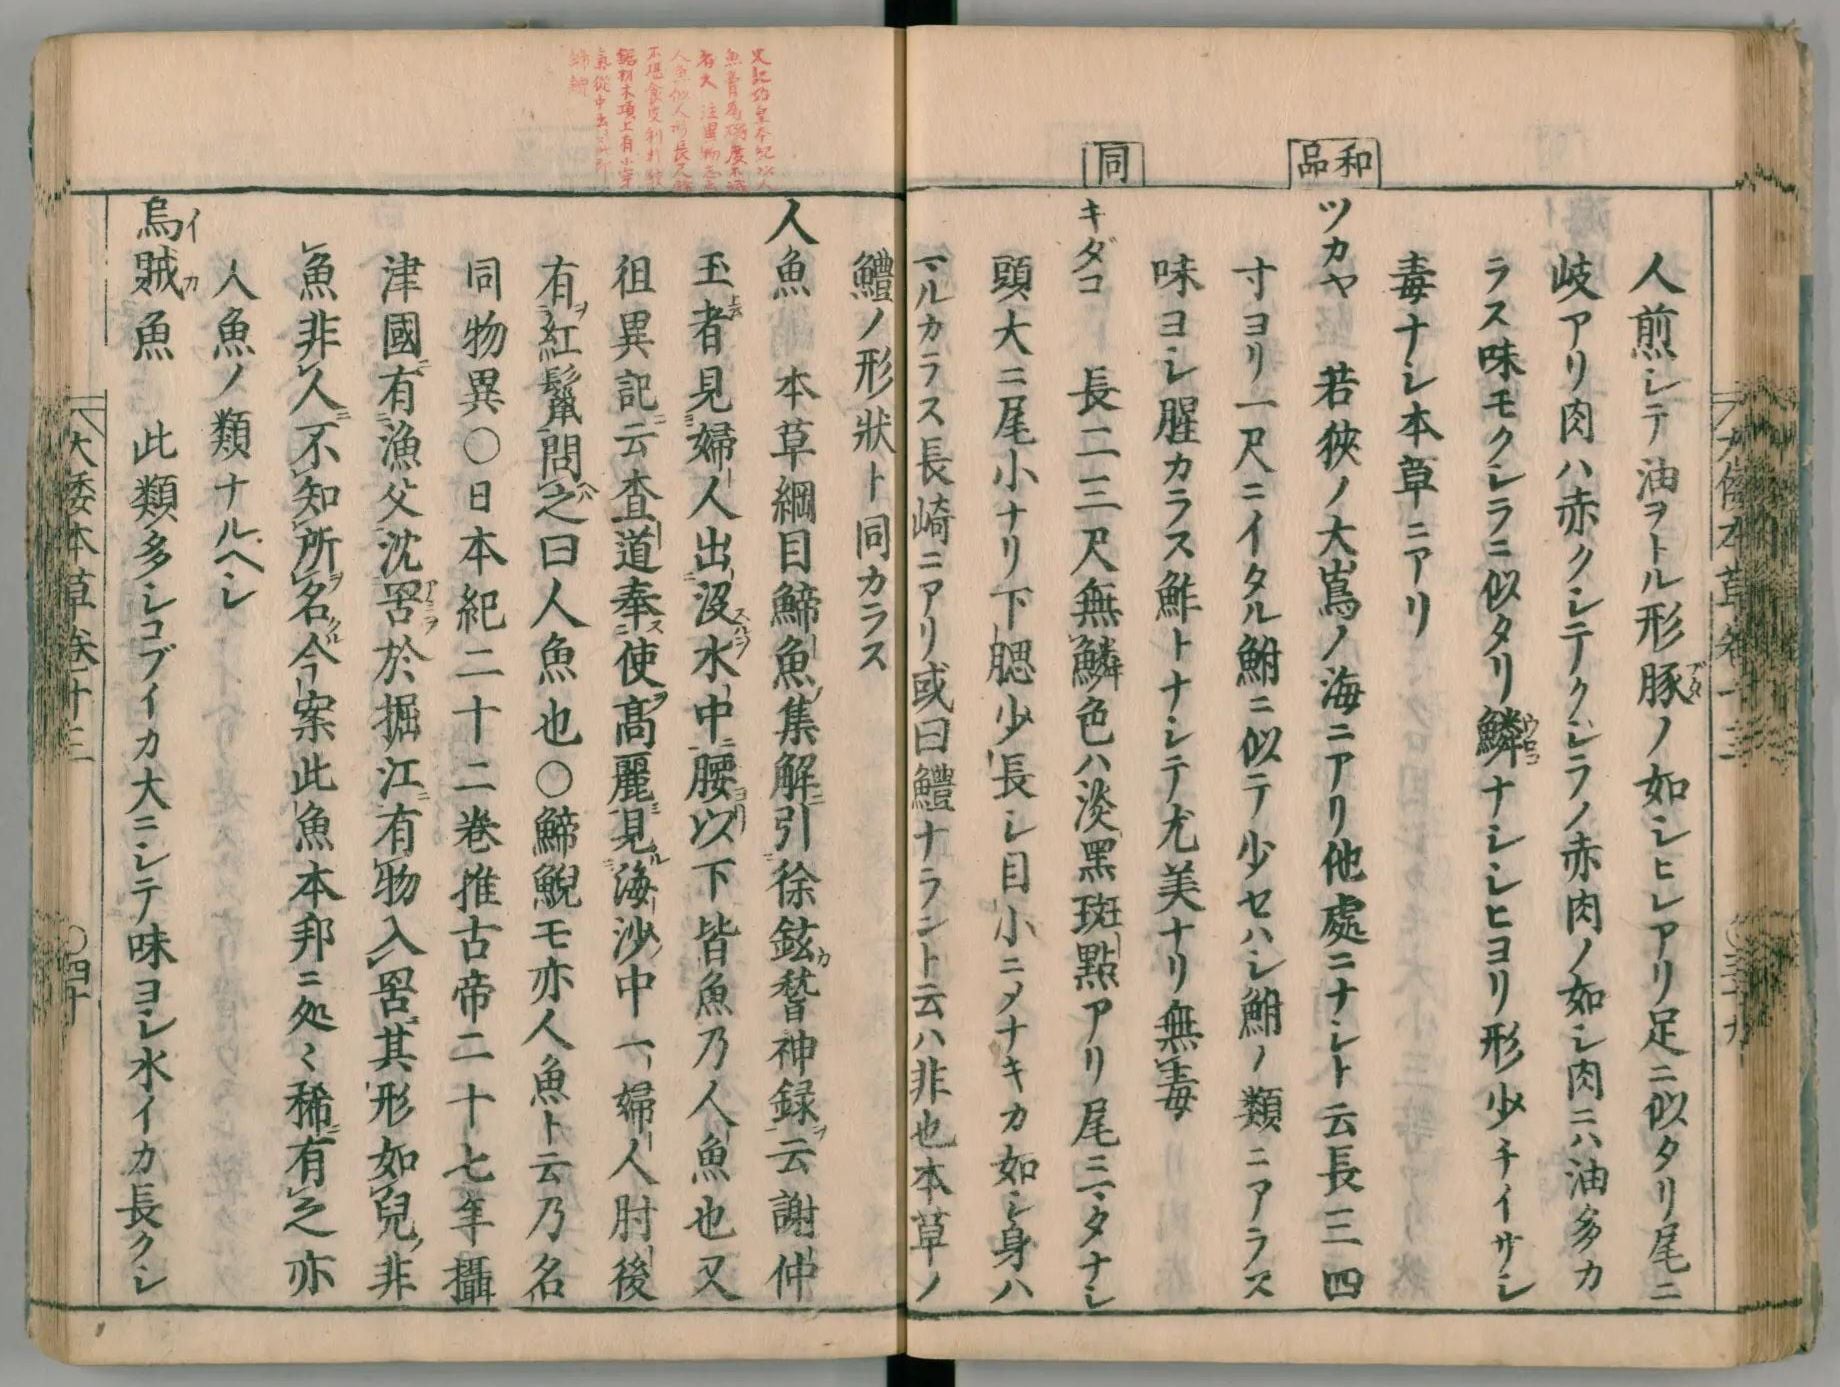 和品
同
人煎シテ油ヲトル形豚ノ如シヒレアリ足ニ似タリ尾ニ
岐アリ肉ハ赤クシテクジラノ赤肉ノ如シ肉ニハ油多カ
ラス味モクシラニ似タリ鱗ナシシヒヨリ形少チイサシ
毒ナシ本草ニアリ
ツカヤ 若狹ノ大嶌ノ海ニアリ他處ニナシト云長三四
寸ヨリ一尺ニイタル鮒ニ似テ少セハシ鮒ノ類ニアラス
味ヨシ腥カラス鮓トナシテ尤美ナリ無毒
キダコ 長二三尺無鱗色ハ淡黑斑點アリ尾ニマタナシ
頭大ニ尾小ナリ下腮少長シ目小ニメナキカ如シ身ハ
マルカラス長崎ニアリ或曰鱧ナラント云ハ非也本草ノ
鱧ノ形狀ト同カラス
人魚 本草綱目鯑魚集解引徐鉉稽神録云謝仲
玉者見婦人出没水中腰以下皆魚乃人魚也又
徂異記云査道奉使髙麗見海沙中一婦人肘後
有紅鬣問之曰人魚也〇鯑鯢モ亦人魚ト云乃名
同物異〇日本紀二十二巻推古帝二十七年攝
津國有漁父沈罟於掘江有物入罟其形如兒非
魚非人不知所名今案此魚本邦ニ処々稀有之亦
人魚ノ類ナルヘシ
烏賊魚 此類多シコブイカ大ニシテ味ヨシ水イカ長クシ
大倭本草卷十三
〇四十